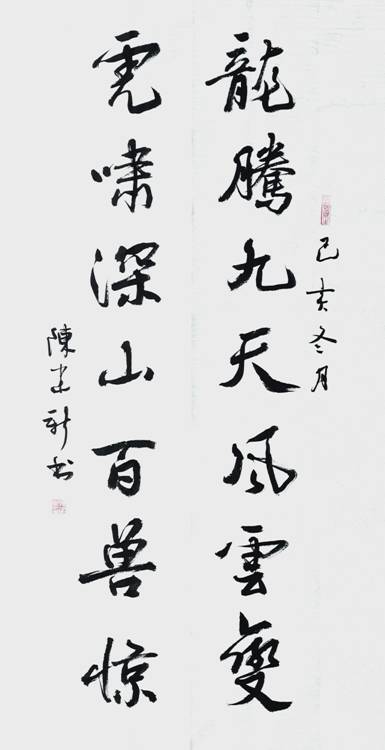 己亥冬月
龍騰九天風雲變
虎嘯深山百兽惊
陳建新书